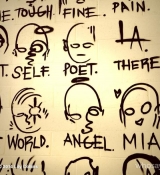 E. TOUGH FINE. PAIN.
T. SELF. POET. L.A. THERE
WORLD. ANGEL. MIA